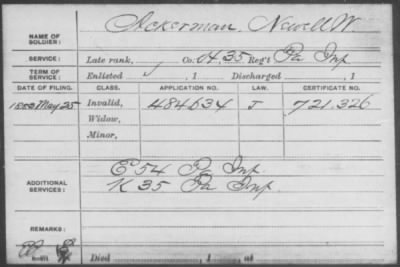 NAME OF SOLDIER: Ackerman, Newell W.
SERVICE: Late rank, Co. 35 Reg't Pa Inf
TERM OF SERVICE: Enlisted , 1 Discharged , 1
DATE OF FILING. CLASS. APPLICATION NO. LAW. CERTIFICATE NO.
May 25 Invalid, 484634 J 721.326
Widow,
Minor,
ADDITIONAL SERVICES: E 54 Pa Inf
K 35 Pa Inf
REMARKS:
Died , 1 , at